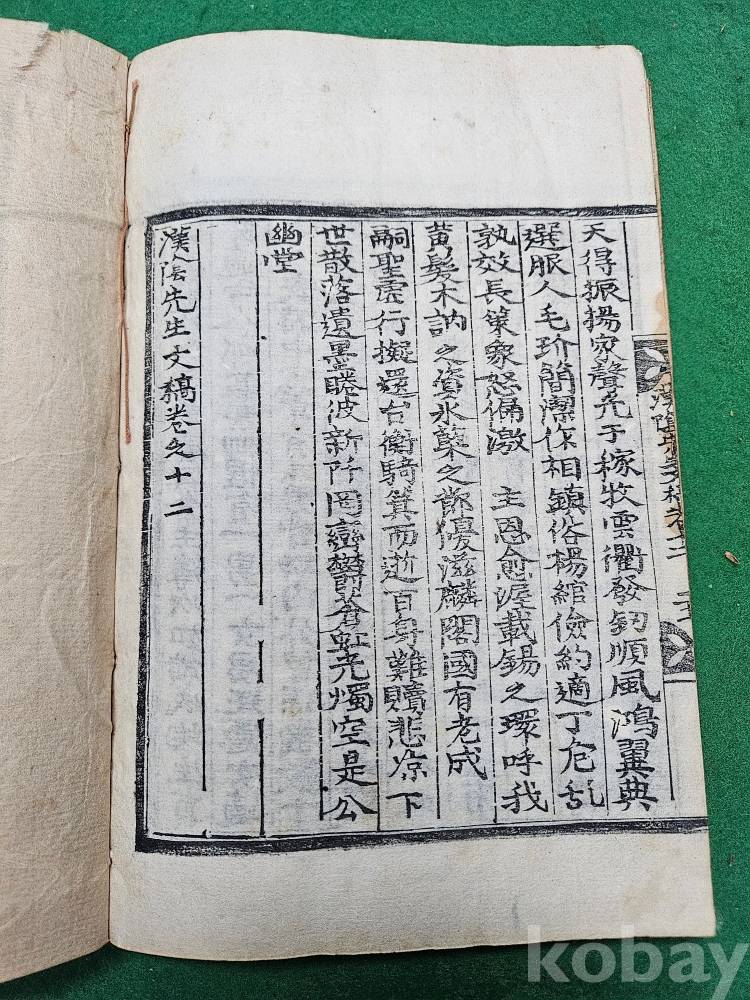 天得振揚家聲先于稼牧雲衢發軔順風鴻翼典
選服人毛玠簡潔作相鎮俗楊綰儉約適丁危乱
孰效長策象怒偏激 主恩愈渥載錫之環呼我
黃髮木訥之資氷蘗之節優游麟閣國有老成
嗣聖虛行擬還台衡騎箕而逝百身難贖悲凉下
世散落遺墨睠波新阡岡巒欝蒼虹光燭空是公
幽堂
漢陰先生文稿卷之十二
kobay